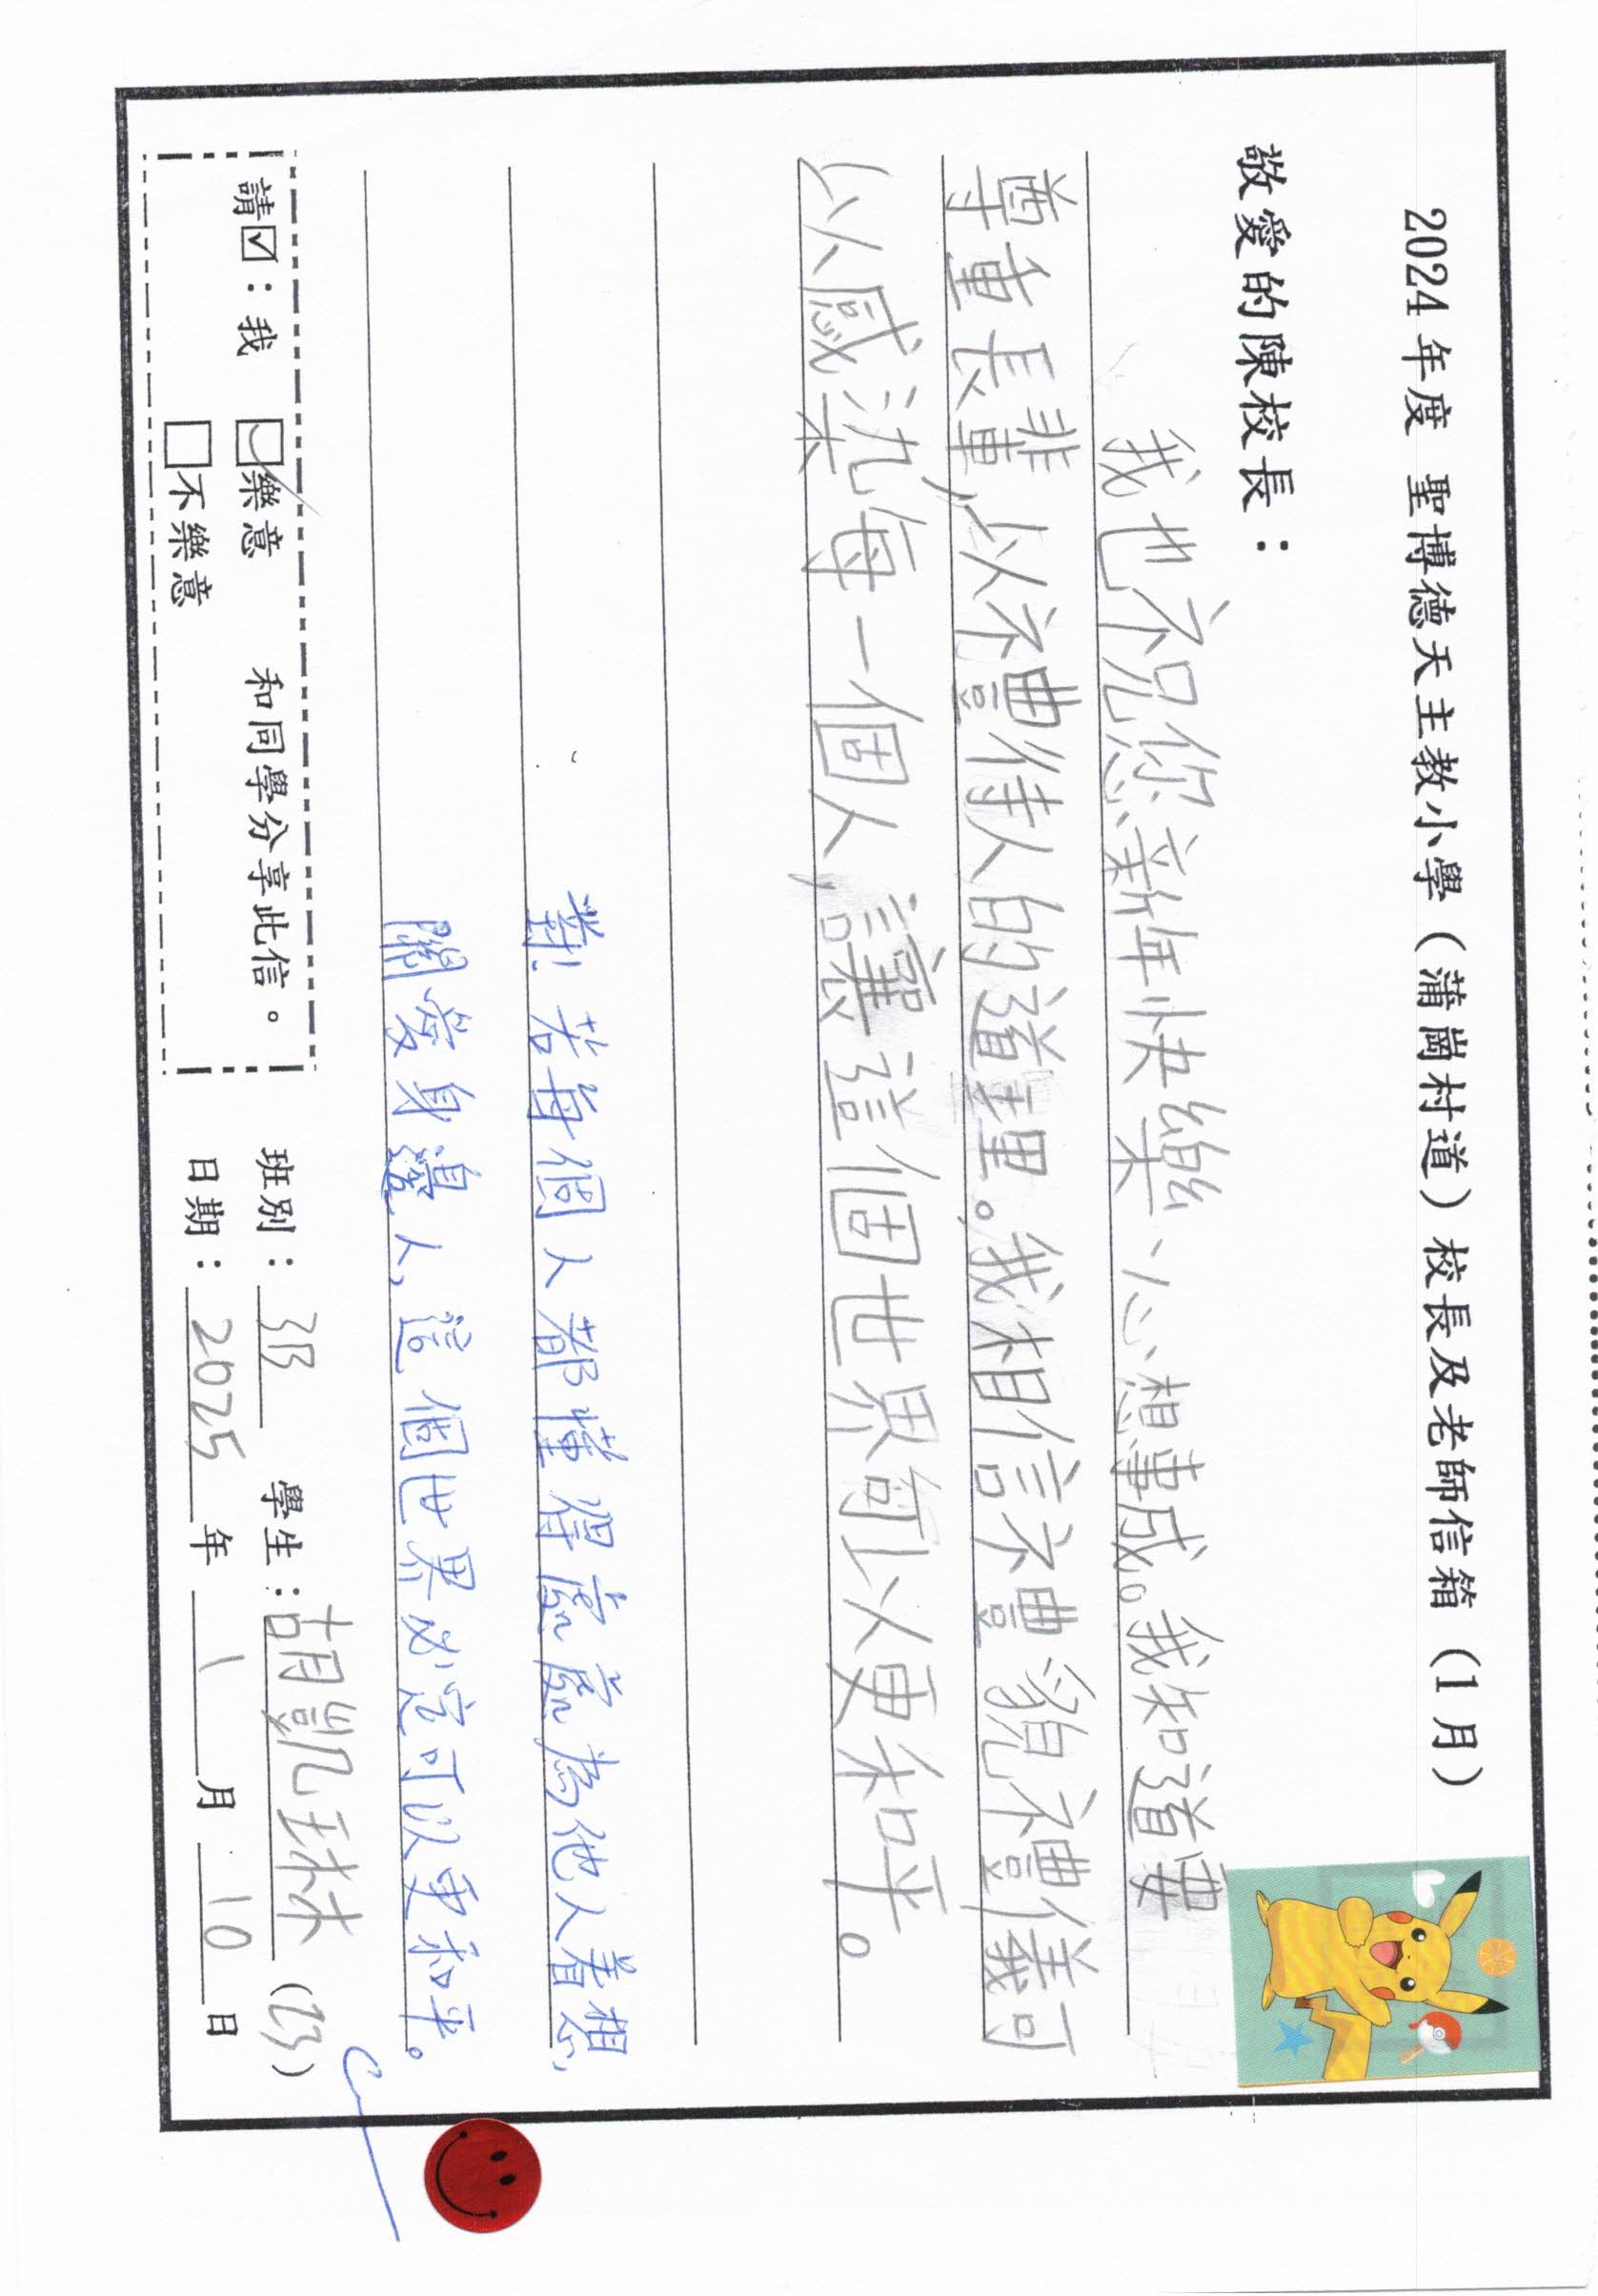 2024年度 聖博德天主教小學（蒲崗村道）校長及老師信箱（1月）
敬愛的陳校長：
我也祝您新年快樂、心想事成。我知道要
尊重長輩，以禮待人的道理。我相信禮貌禮儀可
以感染每一個人，讓這個世界可以更和平。
對！若每個人都懂得處處為他人着想，
關愛身邊人，這個世界必定可以更和平。
請☑：我 ☑樂意 和同學分享此信。
□不樂意
班別：3B 學生：胡凱琳（23）
日期：2025年1月10日